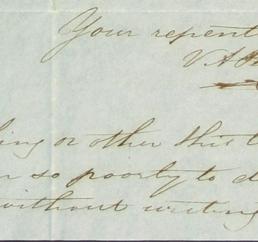 Your repent
V A
hing or other this
so poorly to d
without writing